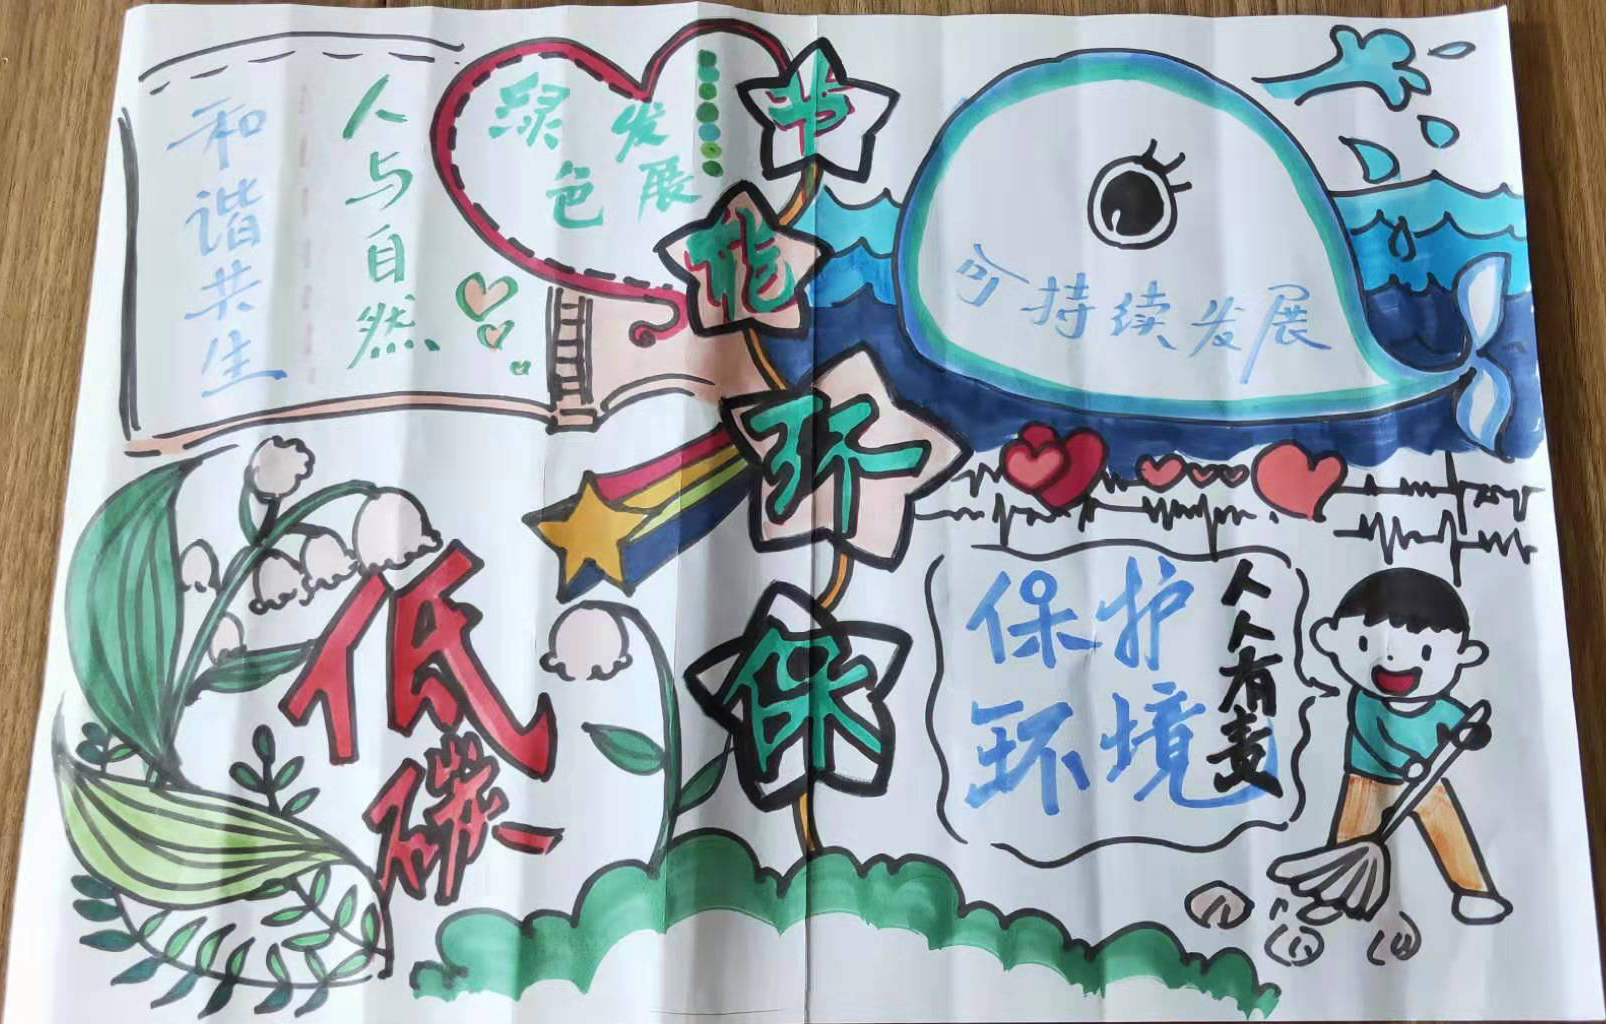 人与自然
和谐共生
绿色
发展
节能环保
可持续发展
低碳
保护
环境
人人有责